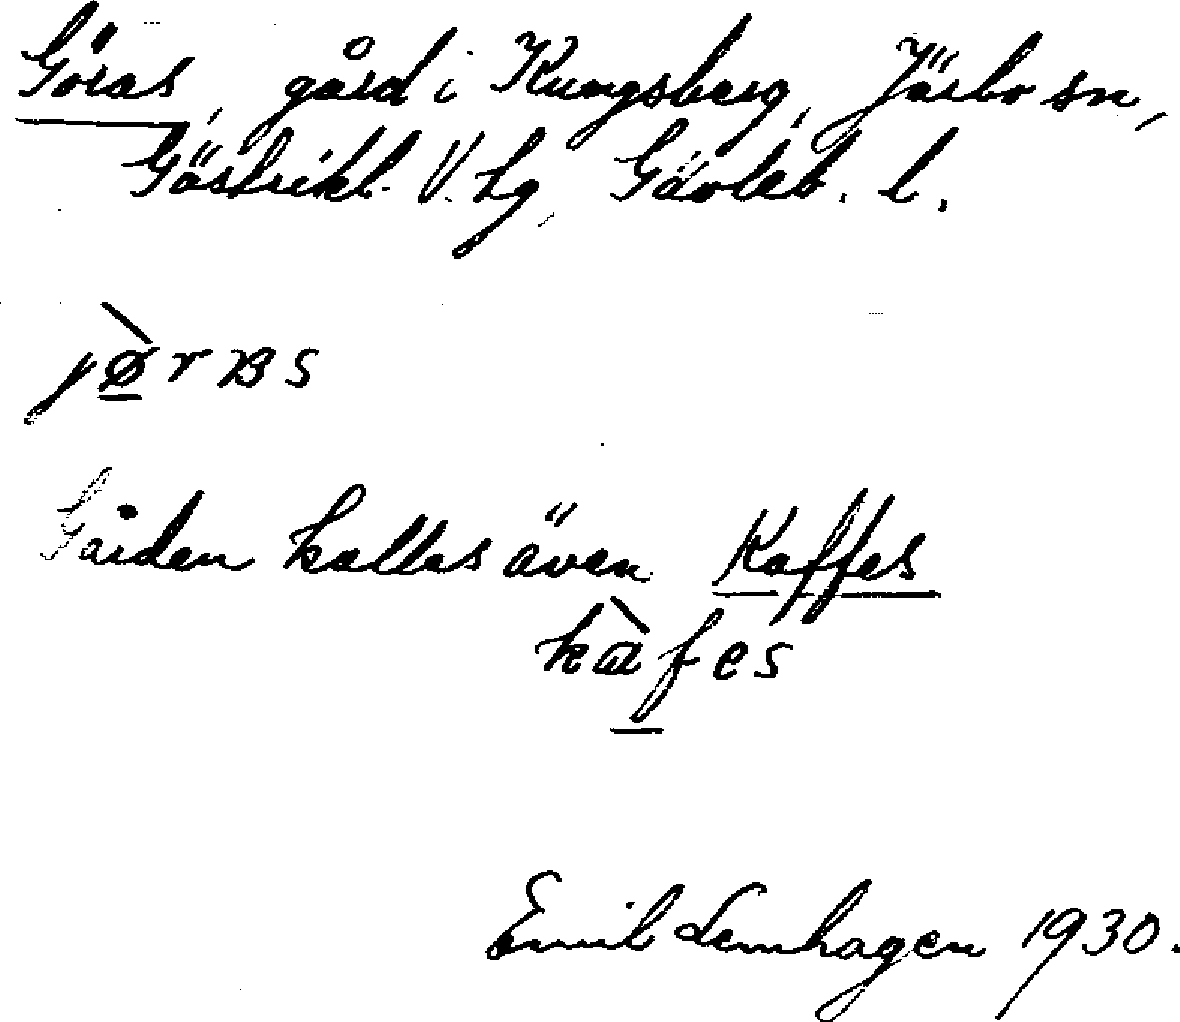 Göras, gård i Kungsberg, Järbo sn,
Gästrikl. V. hg, Gävleb. l.
jø̀rəs
Gården kallas även Kaffes
kàfes
Emil Lemhagen 1930.